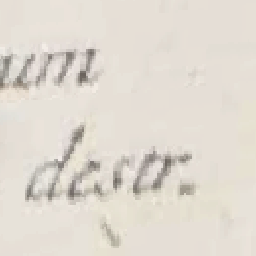 um
destr.